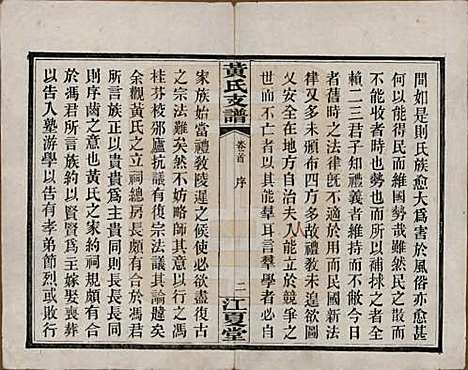 間如是則氏族愈大爲害於風俗亦愈甚
何以能得民而維國勢哉雖然民之散不
能收者時也勢也而所以補捄之者則專
賴二三君子知禮義者維持而匡救之何
者舊時之法律旣不適於用而民國新法
律又多未頒布四方多故禮教未遑欲圖
乂安全在地方自治夫人能立於競爭之
世而不亡者以其能羣耳言羣學者自
黃氏支譜
卷首 序
二
江夏堂
家族始當禮教陵遲之後使必欲盡復古
之宗法難矣然不妨略師其意以行之馮
桂芬校邠廬抗議有復宗法議其論踰矣
余觀黃氏之立祠總房長頗有合於馮君
所言族正以貴貴爲主貴同則長長長同
則序齒之意也黃氏之家約祠規頗有合
於馮君所言族約以賢賢爲主嫁娶喪葬
以告入塾游學以告有孝弟節烈或敗行